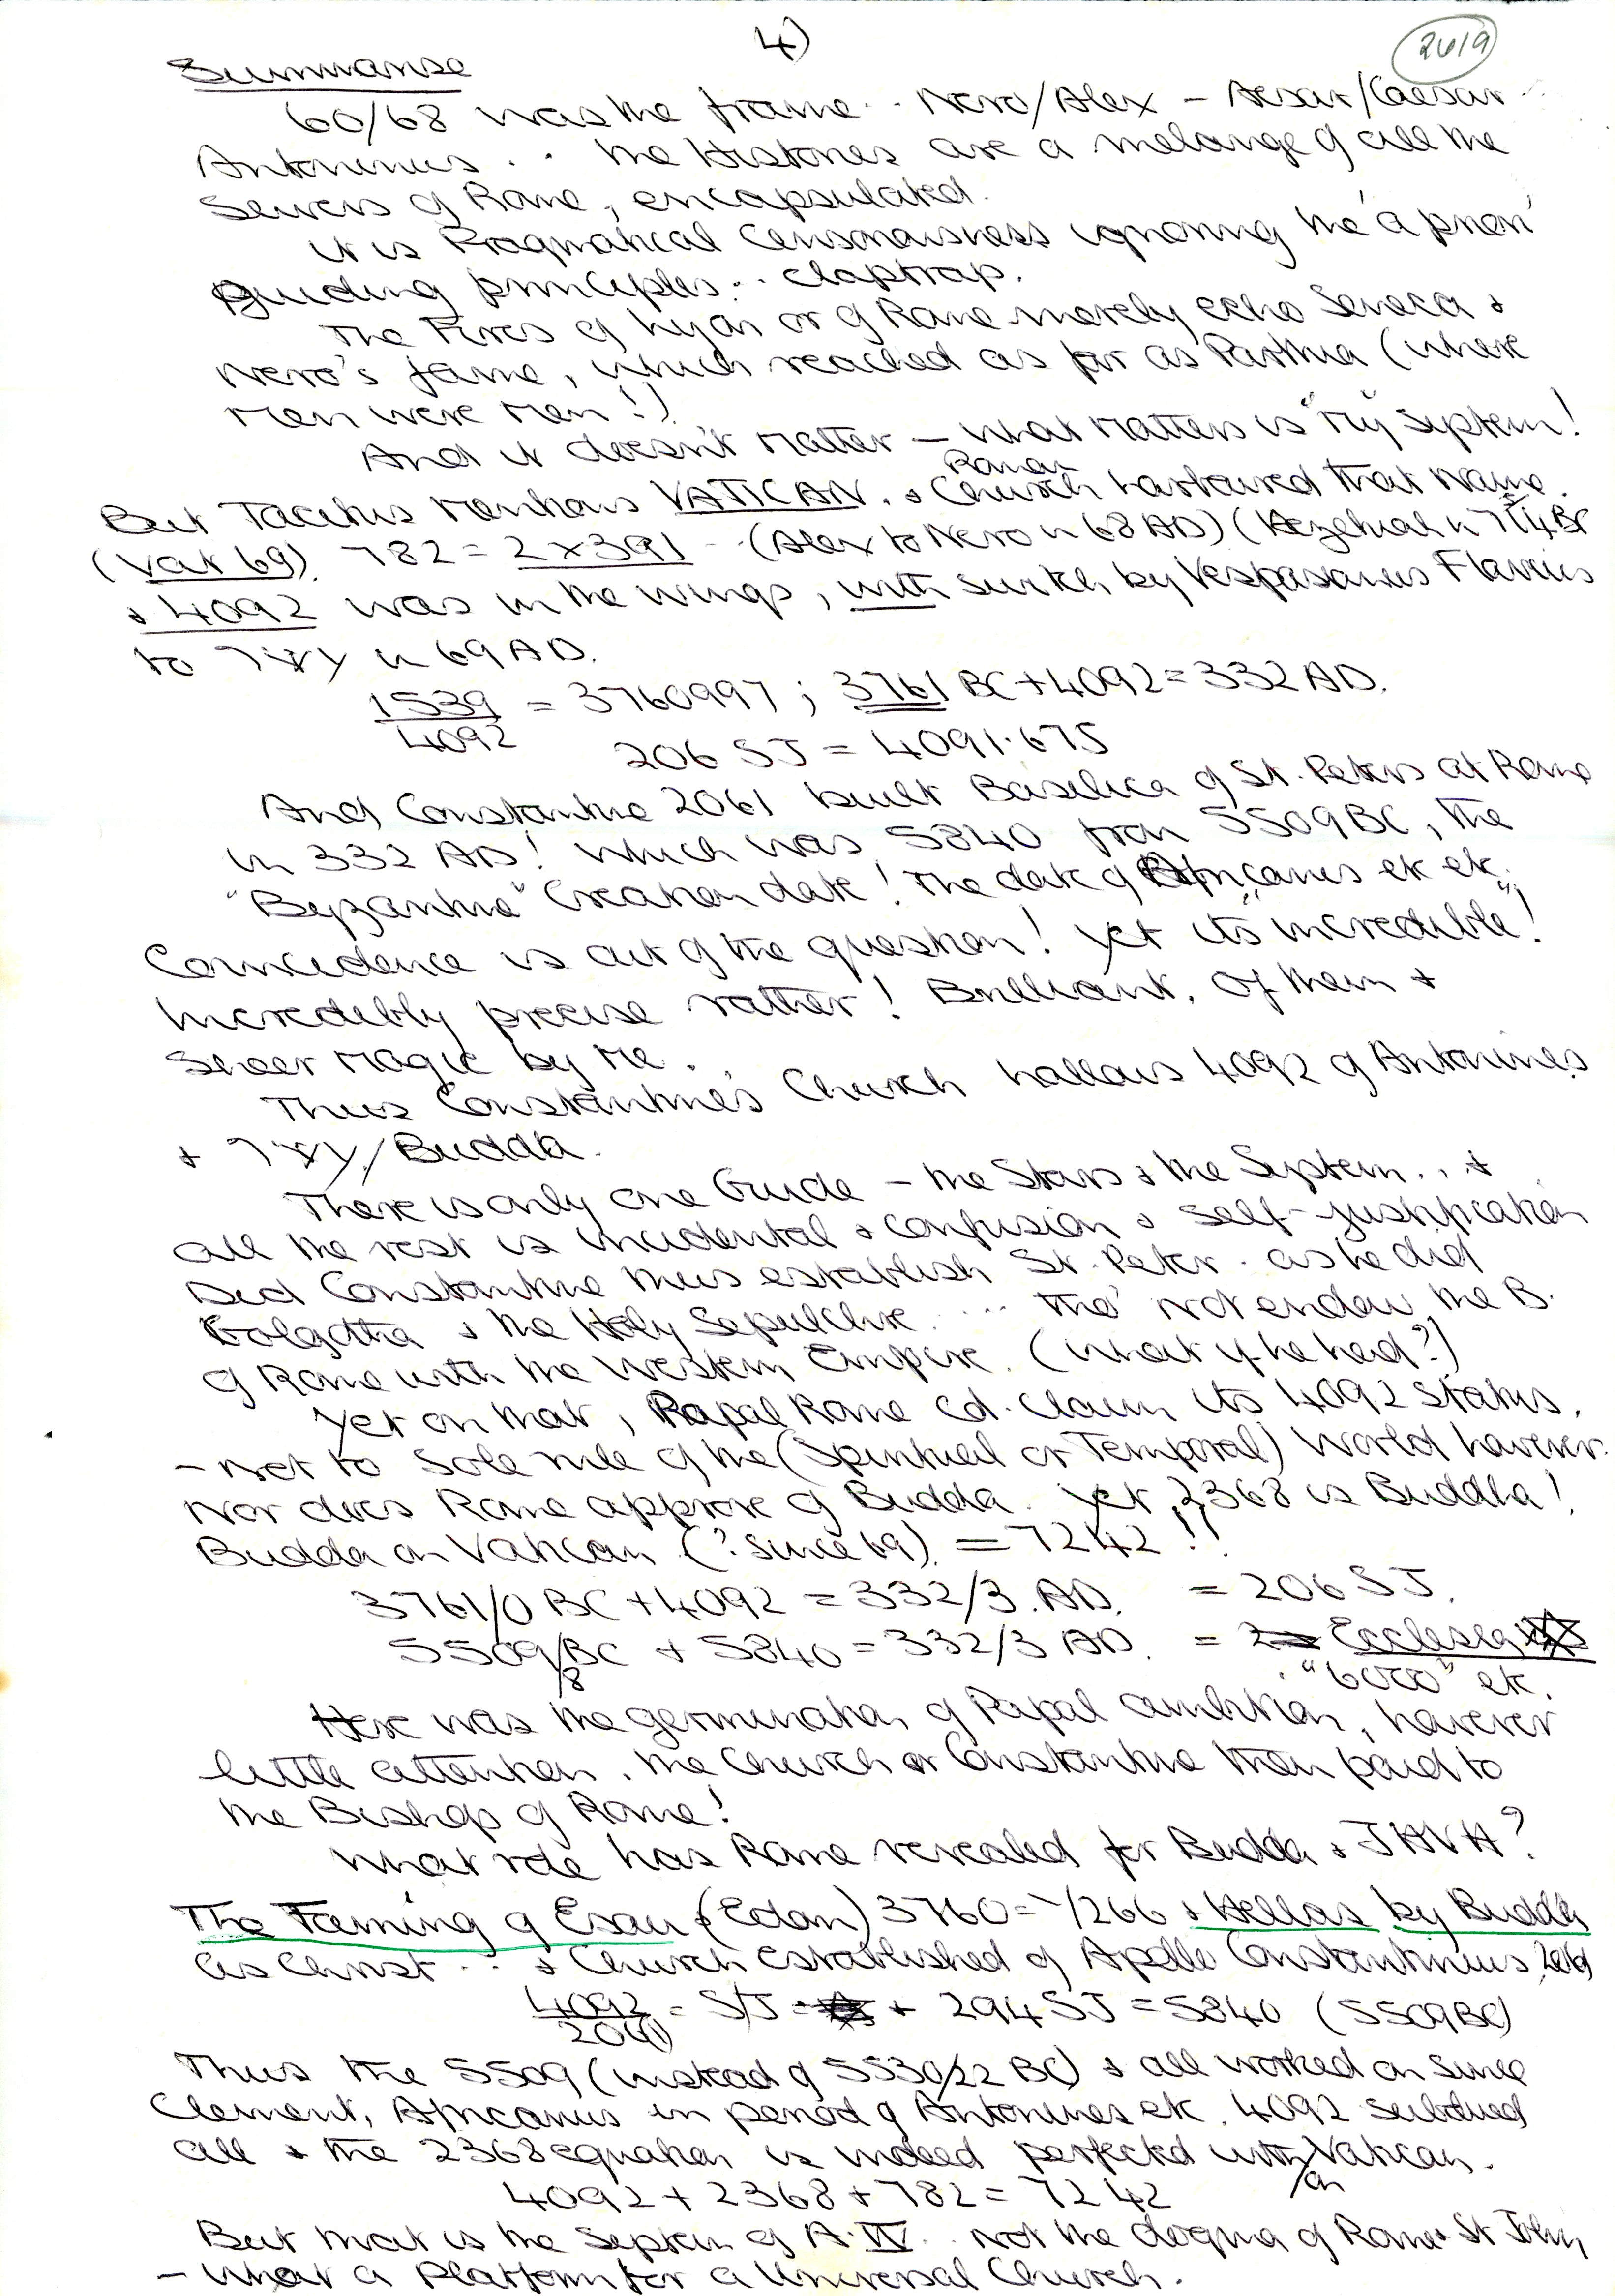 4)
2619
Summarise
60/68 was the frame .. Nero/Alex – Aesar/Caesar
Antoninus .. the Histories are a melange of all the
Sewers of Rome, encapsulated.
it is Pragmatical Censoriousness ignoring the 'a priori'
guiding principles .. claptrap.
The Fires of Lyon or of Rome merely echo Seneca &
Nero's fame, which reached as far as Parthia (where
Men were Men!)
And it doesn't matter – what matters is "My" System!
Roman
But Tacitus mentions VATICAN. & Church harboured that Name.
(Vat 69) 782 = 2 x 391 – (Alex to Nero in 68 AD) (Hezekiah in 714 BC
& 4092 was in the wings, with switch by Vespasianus Flavius
to in 69 AD.
1539 = 3760997 ; 3761 BC + 4092 = 332 AD.
4092 206 SJ = 4091.675
And Constantine 2061 built Basilica of St. Peters at Rome
in 332 AD! which was 5840 from 5509 BC, the
"Byzantine" Creation date! The date of Africanus etc etc.
Coincidence is out of the question! Yet its "incredible"!
Incredibly precise rather! Brilliant. Of them &
Sheer Magic by Me.
Thus Constantine's Church hallows 4092 of Antonines
& /Budda.
There is only one Guide – the Stars & the System .. &
all the rest is incidental & confusion & self-justification
Did Constantine thus establish St. Peter. as he did
Golgotha & the Holy Sepulchre ... tho' not endow the B.
of Rome with the Western Empire. (What if he had?)
Yet on that, Papal Rome cd. claim its 4092 status.
– not to sole rule of the (Spiritual or Temporal) World however.
Nor does Rome approve of Budda. Yet 2368 is Budda!
Budda on Vatican (? since 69) = 7242!!
3761/0 BC + 4092 = 332/3 AD. = 206 SJ.
5509/8 BC + 5840 = 332/3 AD. = Ecclesia
"6000" etc.
Here was the germination of Papal ambition, however
little attention, the Church or Constantine then paid to
the Bishop of Rome!
What role has Rome revealed for Budda & JAVA?
The Taming of Esau (Edom) 3760 = -/266 & Hellas by Budda
as Christ .. & Church established of Apollo Constantinus 2061
4092 = S/J + 294 SJ = 5840 (5509 BC)
206(1)
Thus the 5509 (instead of 5530/22 BC) & all worked on since
Clement, Africanus in period of Antonines etc. 4092 subdued
all & the 2368 equation is indeed perfected with/on Vatican.
4092 + 2368 + 782 = 7242
But that is the System of A.W. .. not the dogma of Rome & St John
– What a Platform for a Universal Church.